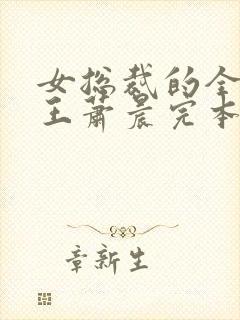 女总裁的全
王萧晨完本
章新生